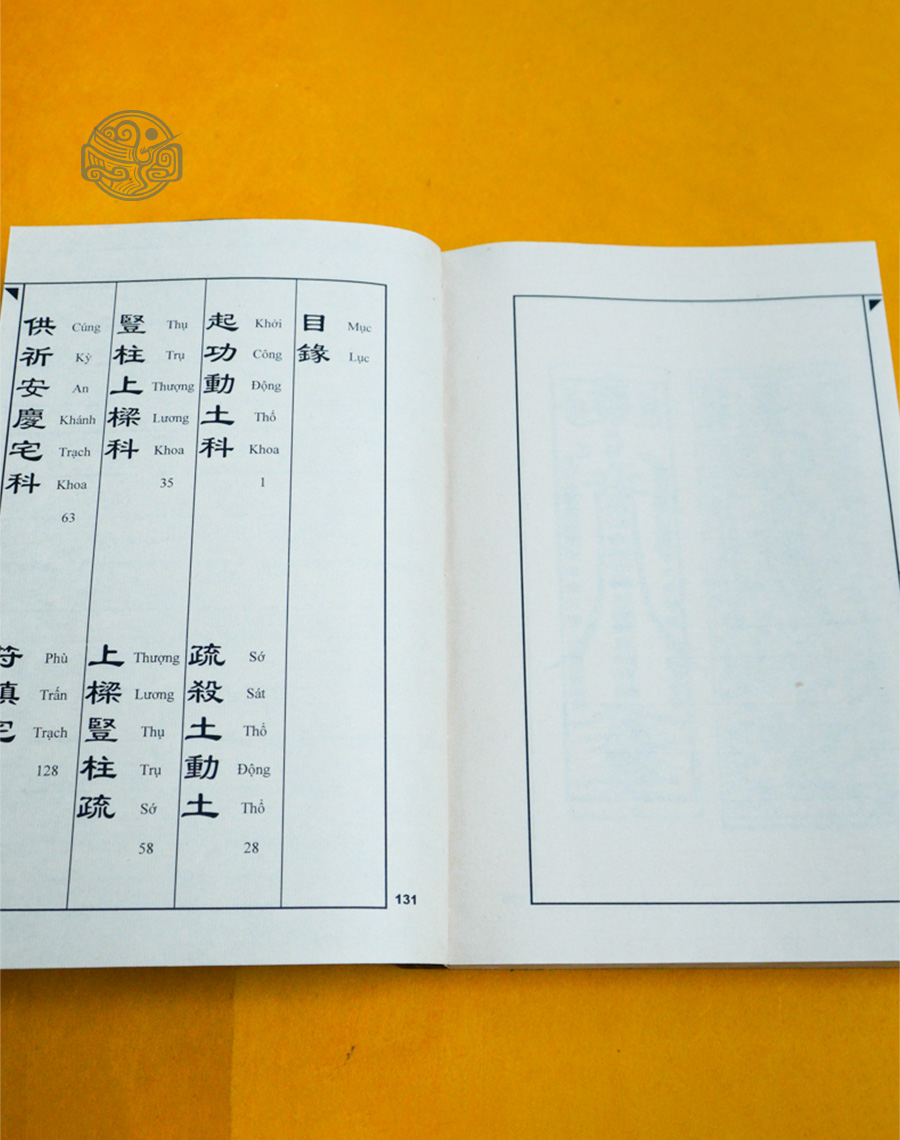 目錄
Mục Lục
起功動土科
Khởi Công Động Thổ Khoa
1
疏殺土動土
Sớ Sát Thổ Động Thổ
28
豎柱上樑科
Thụ Trụ Thượng Lương Khoa
35
上樑豎柱疏
Thượng Lương Thụ Trụ Sớ
58
供祈安慶宅科
Cúng Kỳ An Khánh Trạch Khoa
63
Phù Trấn Trạch
128
131